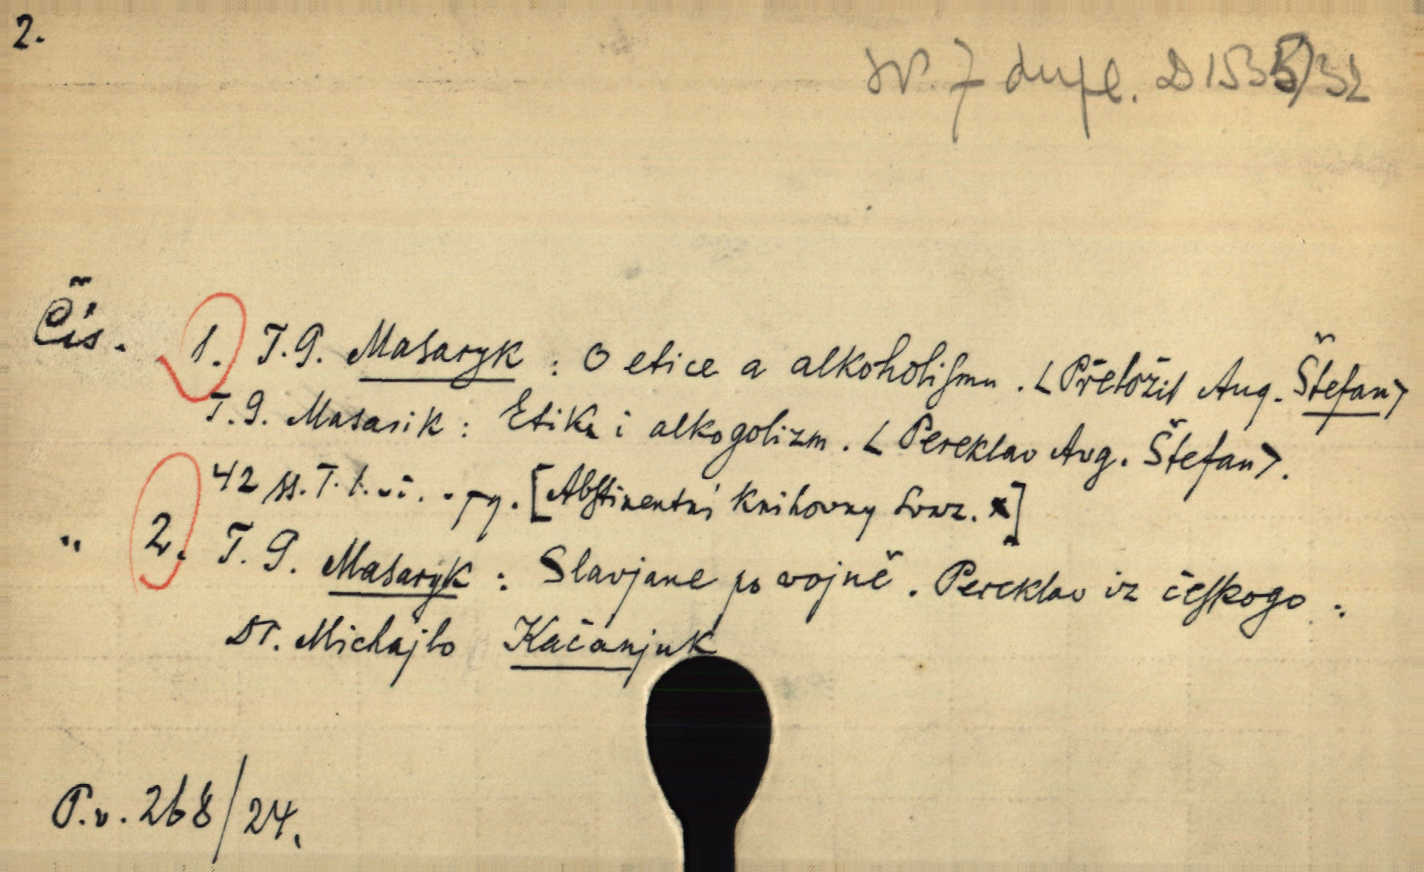 2.
7 dupl. D 1535/32
Čís. 1. T.G. Masaryk : O etice a alkoholismu. <Přeložil Aug. Štefan>
T.G. Masarik : Etika i alkogolizm. < Pereklav Avg. Štefan>.
42 ss. T. 1. [Abstinentní Knihovny svaz. x]
" 2. T. G. Masaryk : Slavjane po vojně. Pereklav iz českogo :
Dr. Michajlo Kačanjuk
P.v. 268/24.